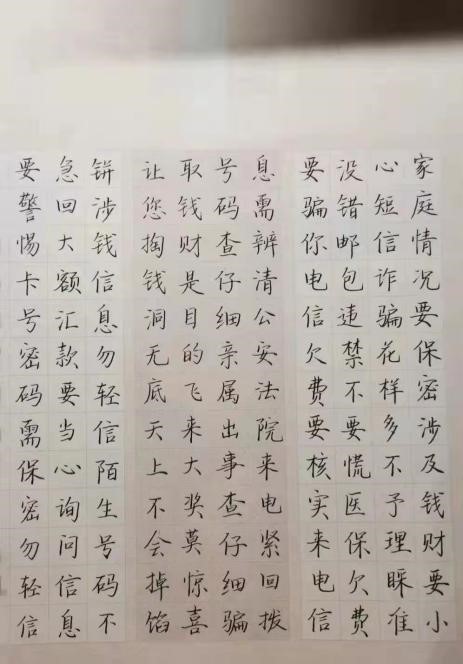 家庭情况要保密涉及钱财要小
心短信诈骗花样多不予理睬准
没错邮包违禁不要慌医保欠费
要骗你电信欠费要核实来电信
息需辨清公安法院来电紧回拨
号码查仔细亲属出事查仔细骗
取钱财是目的飞来大奖莫惊喜
让您掏钱洞无底天上不会掉馅
饼涉钱信息勿轻信陌生号码不
急回大额汇款要当心询问信息
要警惕卡号密码需保密勿轻信